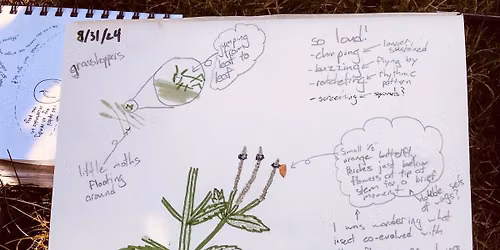 8/31/24
grasshoppers
jumping
from
leaf to
leaf
so loud!
-chirping
longer,
sustained
-buzzing
flying by
-ratcheting
rhythmic
pattern
sounds?
little moths
floating
around
Small ½
orange butterfly
perches just below
flowers at tip of
stem for a brief
moment
double sets
of wings!
I was wondering what
insect co-evolved with